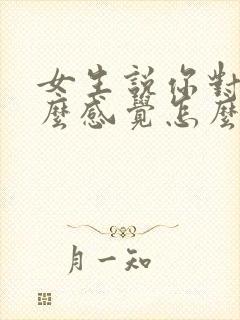 女生說你對
麼感覺怎麼
月一知